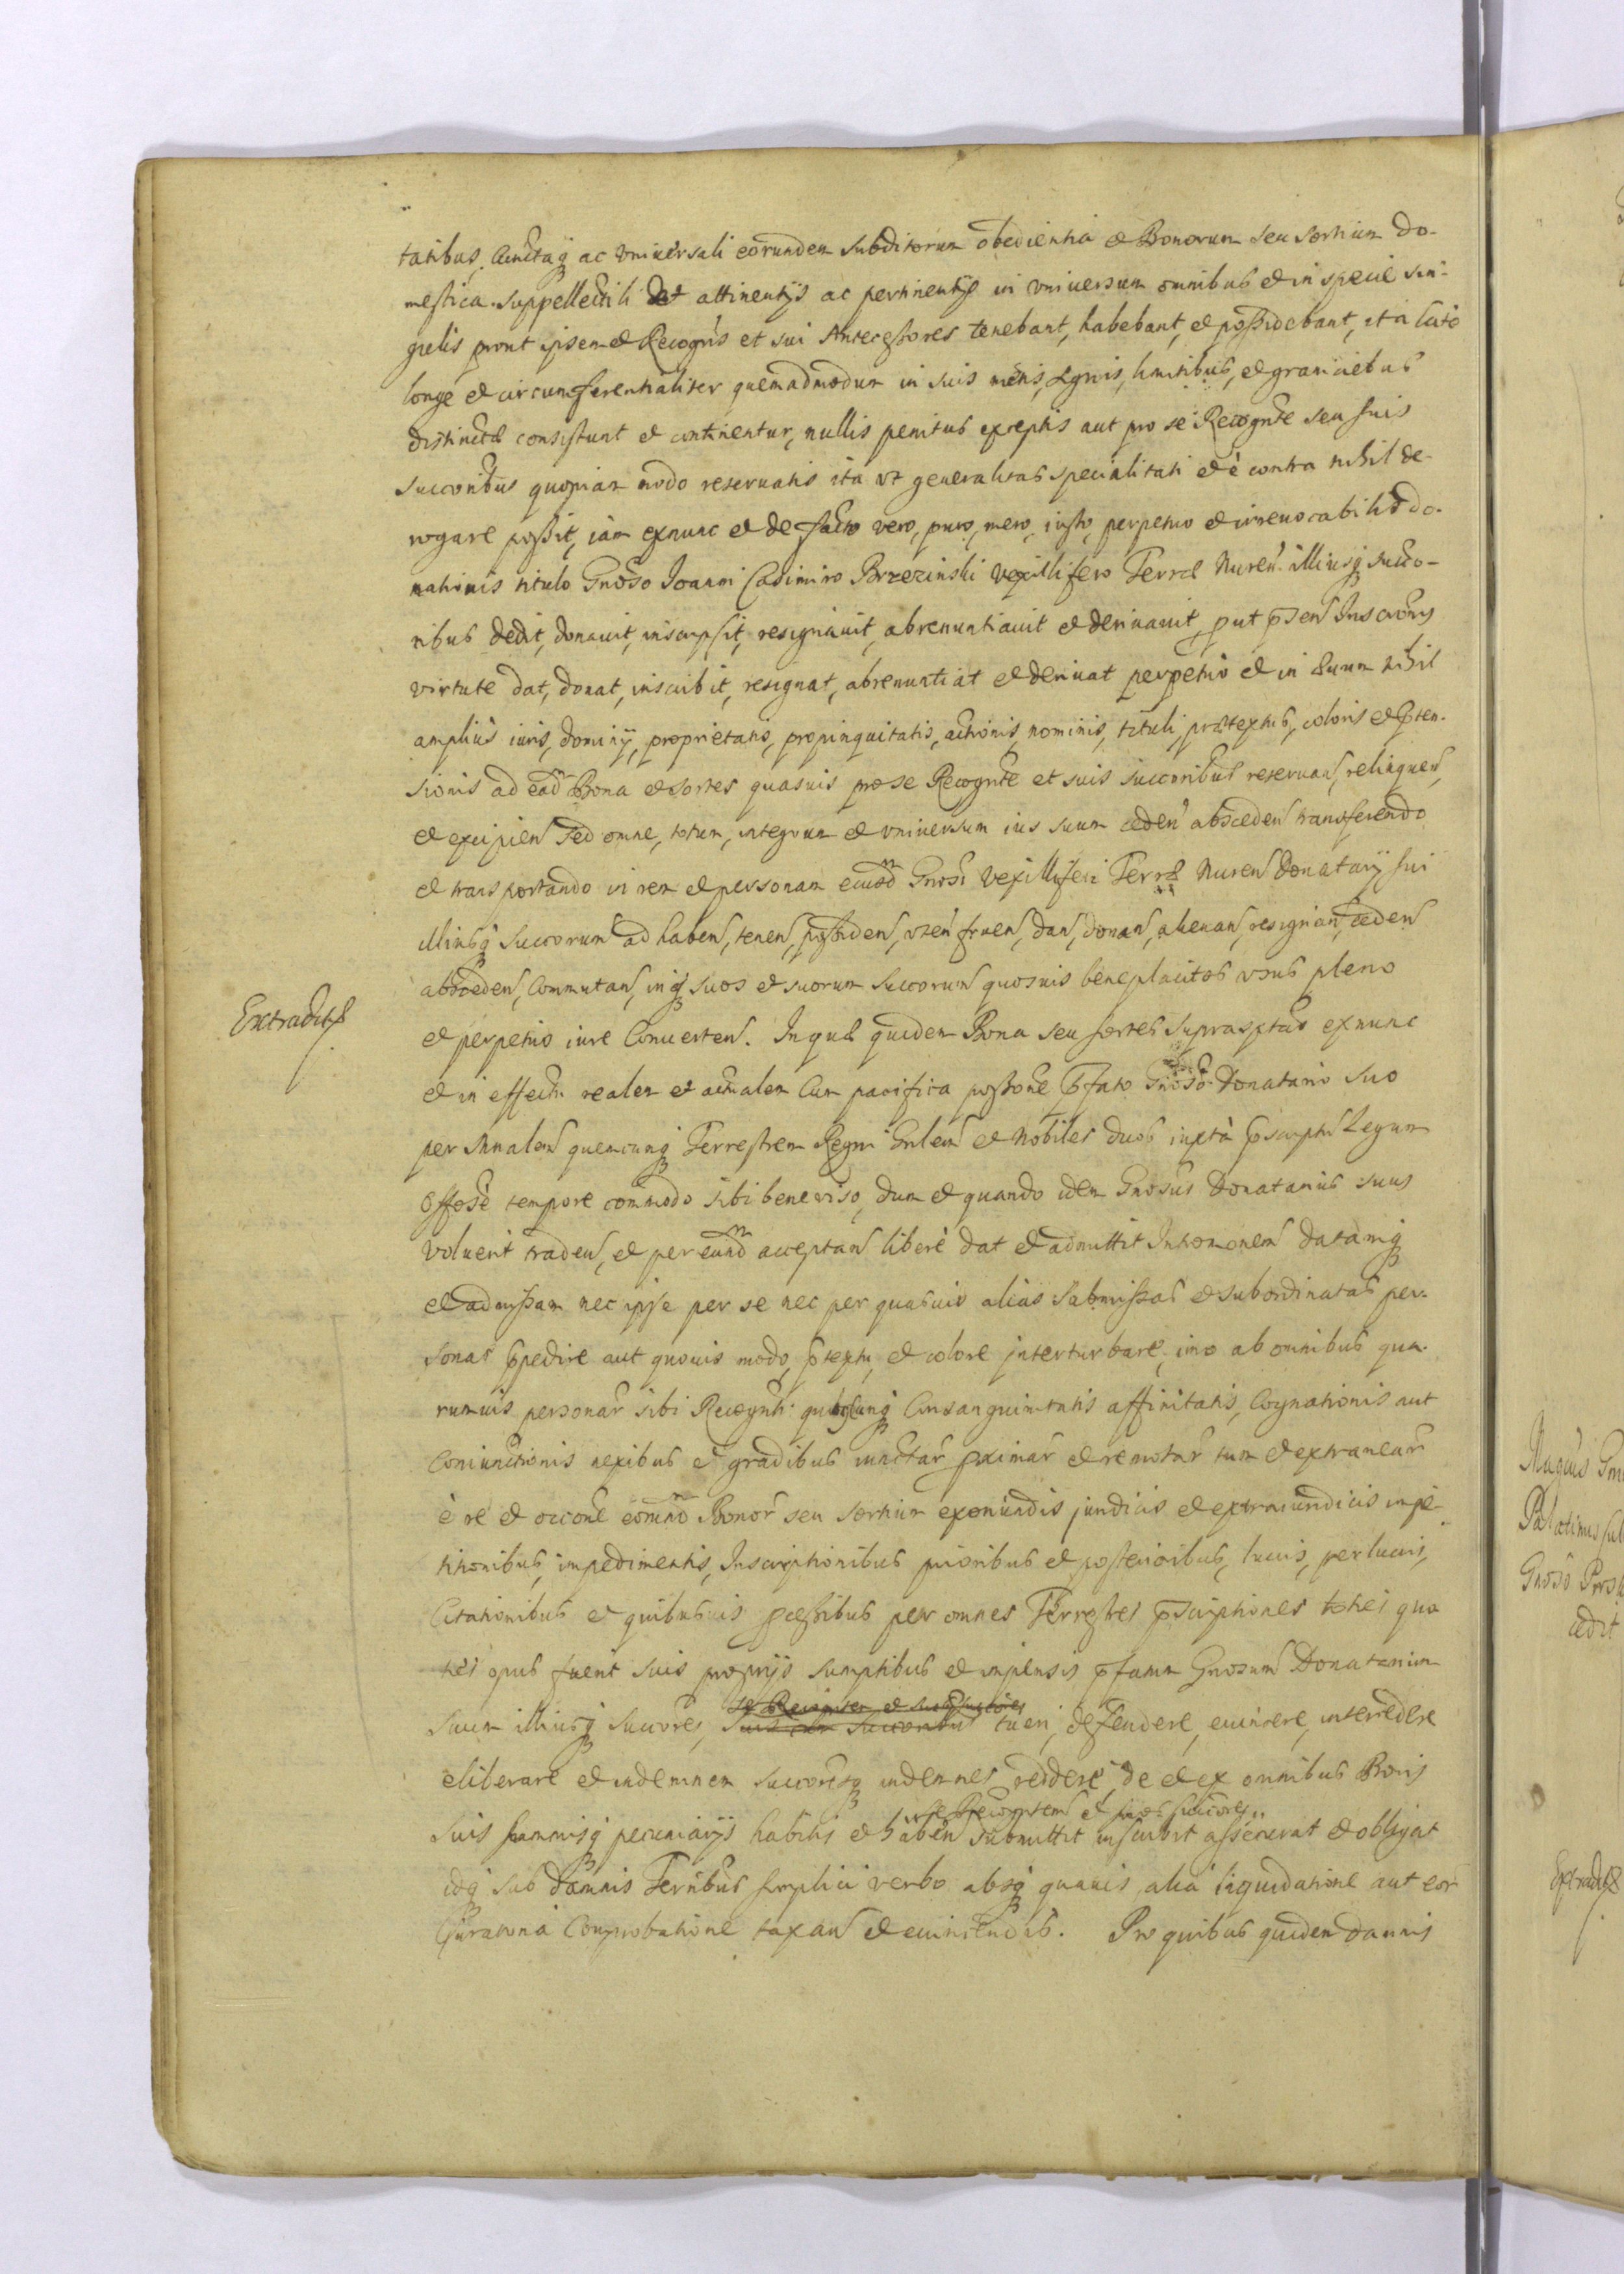 tatibus, cunctaq ac vniuersali eorundem subditorum obedientia et Bonorum seu sortium do-
mestica suppellectili et attinentijs ac pertinentijs in vniuersum omnibus et in specie sin-
gulis prout ipsemet Recogn̄s et sui Antecessores tenebant, habebant, et possidebant, ita late
longe et circumferentialiter quemadmodum in suis metis, signis, limitibus, et graniciebus
distinctæ consistunt et continentur, nullis penitus exceptis aut pro se Recogn̄te seu suis
succoribus quopiam modo reseruatis ita vt generalitas specialitati et è contra nihil de-
rogare possit, iam exnunc et de facto vero, puro, mero, iusto, perpetuo et irreuocabilis do-
nationis titulo Gnoso Joanni Casimiro Brzezinski Vexillifero Terræ Nuren. illiusq succo-
ribus dedit, donauit, inscripsit, resignauit, abrenuntiauit et deriuauit, put p̄sen Inscrōnis
virtute dat, donat, inscribit, resignat, abrenuntiat et deriuat perpetuo et in æuum nihil
amplius iuris, dominij, proprietatis, propinquitatis, actionis, nominis, tituli, prætextus, coloris et p̄ten-
sionis ad ead Bona et sortes quasuis pro se Recogn̄te et suis succoribus reseruan, relinquen,
et excipien sed omne, totum, integrum et vniuersum ius suum ceden absceden transferendo
et transportando in rem et personam eiusd Gnosi Vexilliferi Terræ Nuren Donatarij sui
illiusq succorum ad haben, tenen, possiden, vten fruen, dan, donan, alienan, resignan, ceden
absceden, commutan, inq suos et suorum succorum quosuis beneplacitos vsus pleno
Extradit
et perpetuo iure conuerten. In quæ quidem Bona seu sortes suprasptas exnunc
et in effectu realem et actualem cum pacifica possone p̄fato Gnoso Donatario suo
per Mnalem quemcunq Terrestrem Regni Gnlem et Nobiles duos iuxta p̄scriptu Legum
Offose tempore commodo sibi beneuiso, dum et quando idem Gnosus Donatarius suus
voluerit traden, et per eund acceptan liberè dat et admittit Intromonem datamq
et admissam nec ipse per se nec per quasuis alias submissas et subordinatas per-
sonas p̄pedire aut quouis modo, p̄textu, et colore interturbare, imo ab omnibus qua-
rumuis personar sibi Recogn̄ti quibuscunq consanguinitatis affinitatis, cognationis aut
coniunctionis nexibus et gradibus iunctar proximar et remotar tum et extranear
è re et occone eorund Bonor seu sortium exoriundis juridicis et extraiuridicis impe-
titionibus, impedimentis, Inscriptionibus prioribus et posterioribus, lucris, perlucris,
Citationibus et quibusuis pcessibus per omnes Terrestres p̄scriptiones toties quo
ties opus fuerit suis proprijs sumptibus et impensis p̄fatum Gnosum Donatarium
se Recogntem et suos succores
suum illiusq succores, suis cum succoribus tueri, defendere, euincere, intercedere
eliberare et indemnem succoresq indemnes reddere de et ex omnibus Bonis
se Recogntem et suos succores
suis summisq pecuniarijs habitis et haben submittit inscribit asseuerat et obligat
idq sub damnis Terribus simplici verbo absq quauis alia liquidatione aut cor
juratoria comprobatione taxan et euincendis. Pro quibus quidem damnis
Magcus
Palatinus
Gnoso
cedit
Extradit